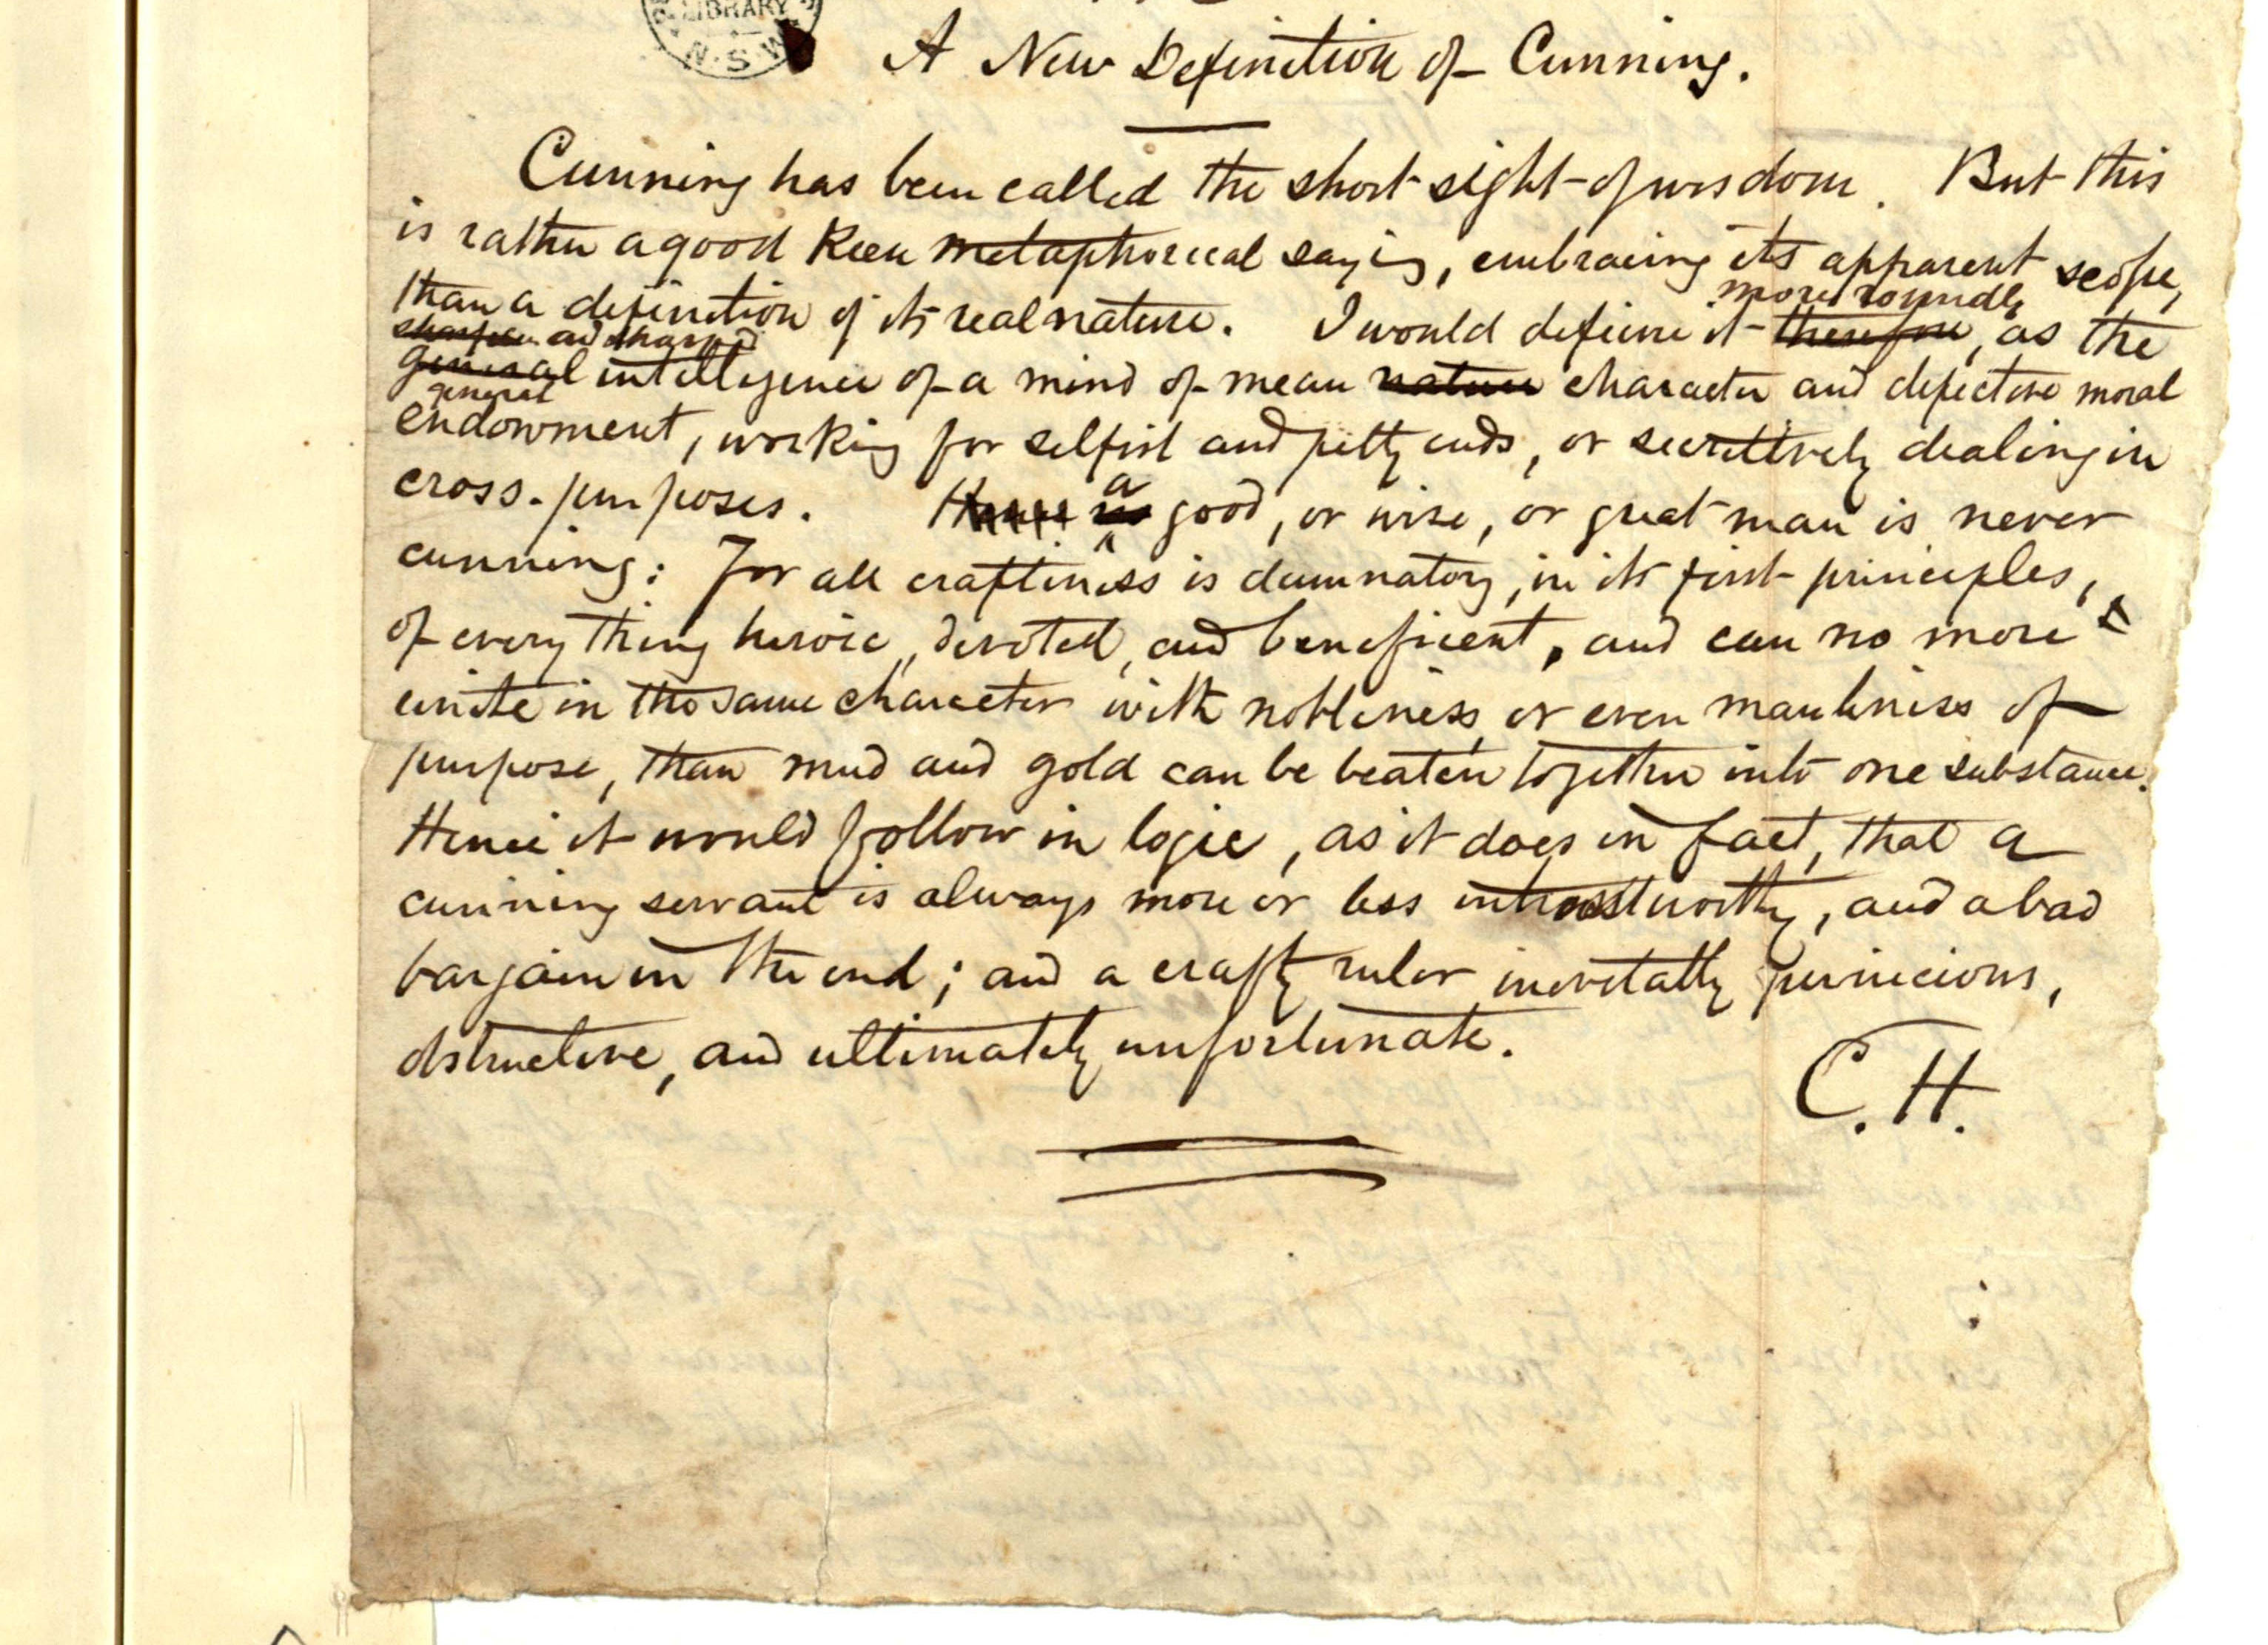 LIBRARY
N.S.W.
A New Definition of Cunning.
Cunning has been called the short sight of wisdom. But this
is rather a good keen metaphorical saying, embracing its apparent scope,
more roundly
than a definition of its real nature. I would define it therefore, as the
and sharped
general intelligence of a mind of mean nature character and defective moral
general
endowment, working for selfish and petty ends, or secretively dealing in
a
cross-purposes. good, or wise, or great man is never
cunning: For all craftiness is damnatory, in its first principles,
of every thing heroic, devoted, and beneficent, and can no more
unite in the same character with nobleness, or even manliness of
purpose, than mud and gold can be beaten together into one substance.
Hence it would follow in logic, as it does in fact, that a
cunning servant is always more or less intrustworthy, and a bad
bargain in the end; and a crafty ruler inevitably pernicious,
obstructive, and ultimately unfortunate.
C. H.